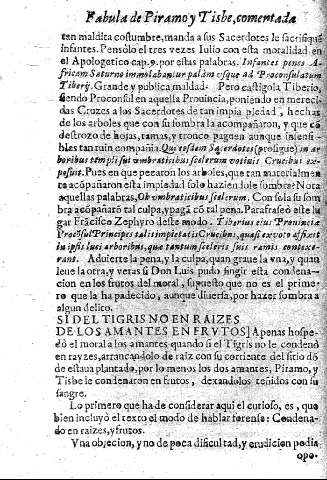 Fabula de Piramo y Tisbe, comentada
tan maldita costumbre, manda a sus Sacerdotes le sacrifiquē
infantes. Pensòlo el tres vezes Iulio con esta moralidad en
el Apologetico cap.9. por estas palabras. Infantes penes A-
fricam Saturno immolabantur palàm vsque ad Proconsulatum
Tiberij. Grande y publica maldad. Pero castigola Tiberio,
siendo Proconsul en aquella Prouincia, poniendo en mereci-
das Cruzes a los Sacerdotes de tan impia piedad, hechas
de los arboles que con su sombra la acompañaron, y que cō
destrozo de hojas, ramas, y tronco paguen aunque insensi-
bles tan ruin compañia. Qui eosdem Sacerdotes (prosigue) in ar-
boribus templi sui vmbraticibus scelerum votiuis Crucibus ex-
posuit. Pues en que pecaron los arboles, que tan materialmen
te acōpañaron esta impiedad solo haziendole sombra? Nota
aquellas palabras, Obvmbraticibus scelerum. Con sola su som
bra acōpañarō tal culpa, y pagā cō tal pena. Parafraseò este lu
gar Frācisco Zephyro deste modo. Tiberius eius Prouinciæ
Procōsul Principes talis impietatis Crucibus, quasi exuoto affixit
in ipsis luci arboribus, quæ tantum sceleris suis ramis contexe-
rant. Aduierte la pena, y la culpa, quan graue la vna, y quan
leue la otra, y veras si Don Luis pudo fingir esta condena-
cion en los frutos del moral, supuesto que no es el prime-
ro que la ha padecido, aunque diuersa, por hazer sombra a
algun delito.
SI DEL TIGRIS NO EN RAIZES
DE LOS AMANTES EN FRVTOS] Apenas hospe-
dò el moral a los amantes quando si el Tigris no le condenò
en rayzes, arrancandolo de raiz con su corriente del sitio dō
de estaua plantado, por lo menos los dos amantes, Piramo, y
Tisbe le condenaron en frutos, dexandolos teñidos con su
sangre.
Lo primero que ha de considerar aqui el curioso, es, que
bien incluyò el texto el modo de hablar forense: Condena-
do en raizes, y frutos.
Vna objecion, y no de poca dificultad, y erudicion podia
opo-